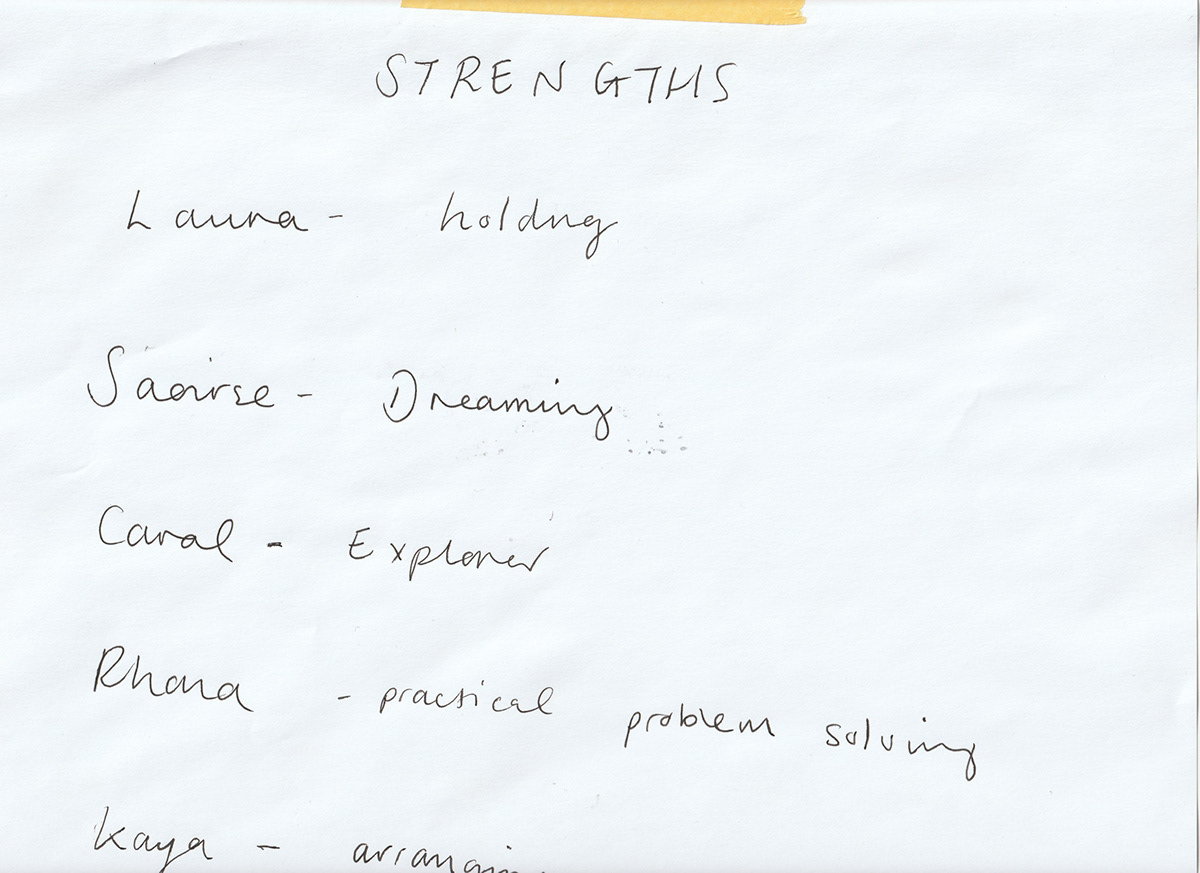 STRENGTHS
Laura - holdng
Saoirse - Dreaming
Caral - Explorer
Rhona - practical problem solving
Kaya -